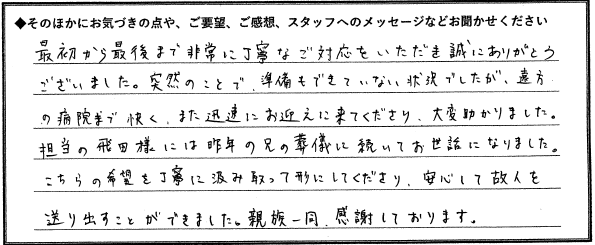 ◆そのほかにお気づきの点や、ご要望、ご感想、スタッフへのメッセージなどお聞かせください
最初から最後まで非常に丁寧なご対応をいただき誠にありがとう
ございました。突然のことで、準備もできていない状況でしたが、遠方
の病院まで快く、また迅速にお迎えに来てくださり、大変助かりました。
担当の飛田様には昨年の兄の葬儀に続いてお世話になりました。
こちらの希望を丁寧に汲み取って形にしてくださり、安心して故人を
送り出すことができました。親族一同、感謝しております。